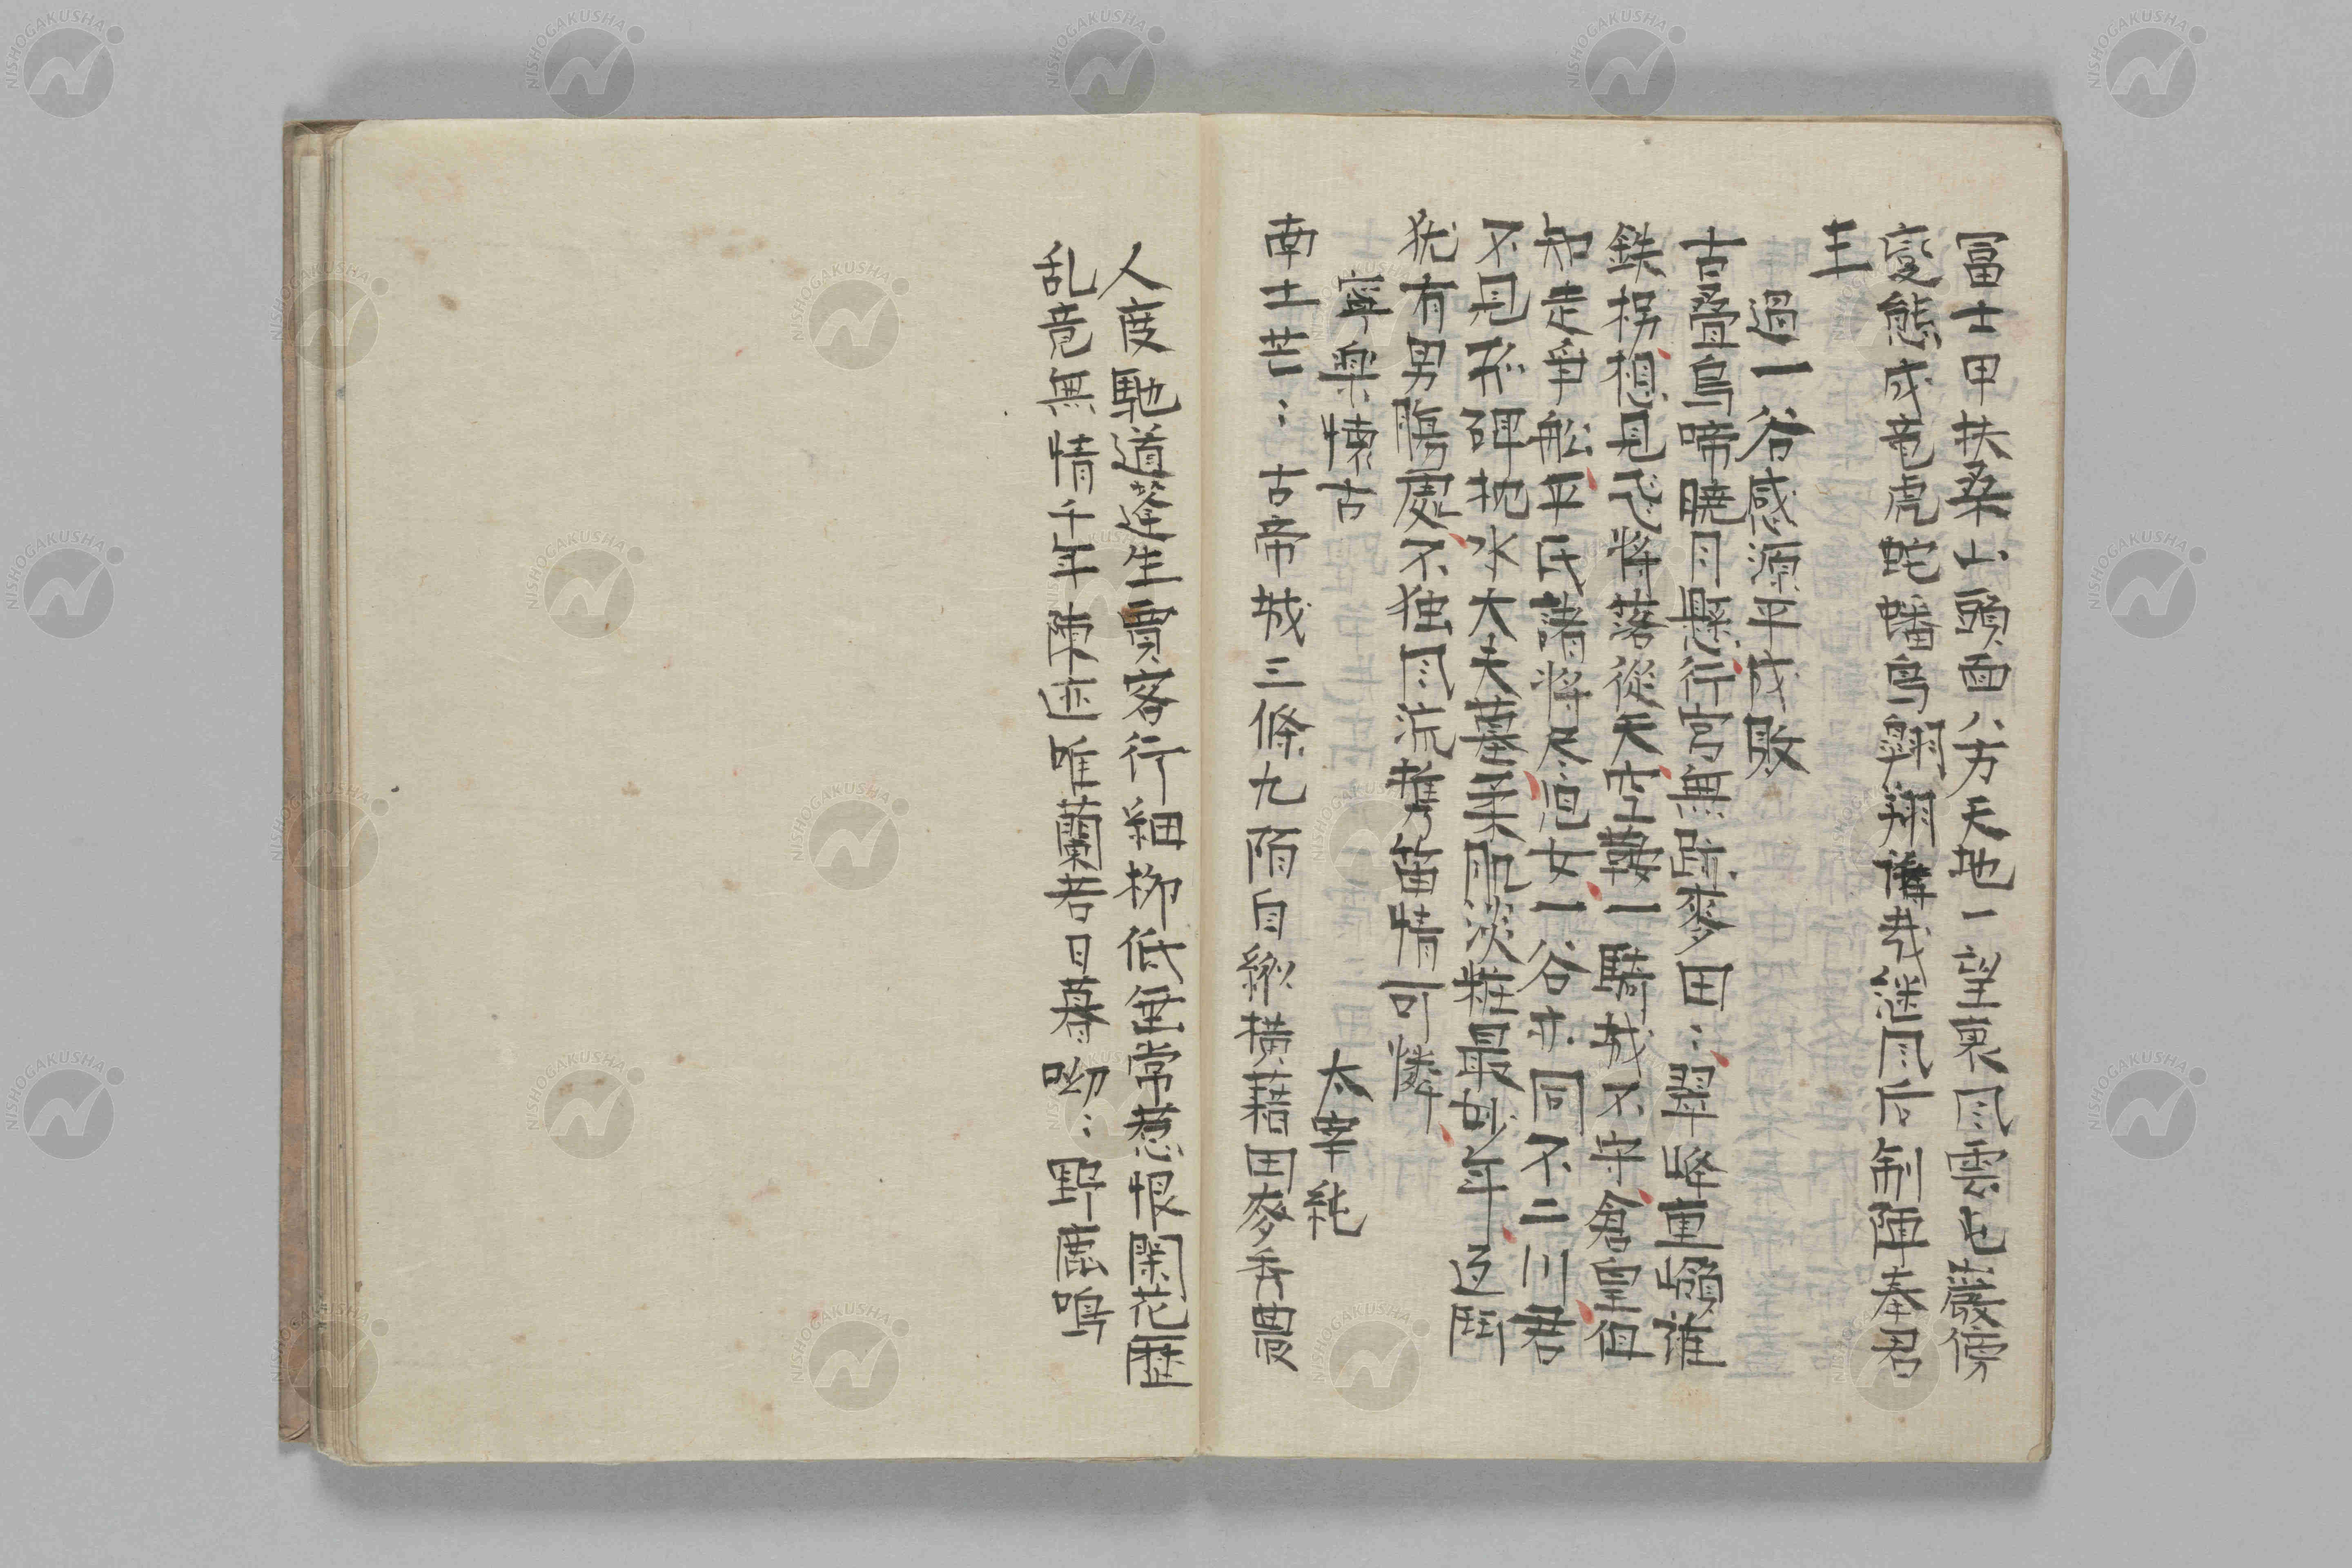 冨士甲扶桑山頭面八方天地一望裏風雲屯巌傍
変態成竜虎蛇蟠鳥翔翔偉哉深風后制陣奉君
王
過一谷感源平成敗
古畳鳥啼暁月懸行宮無跡麥田〻翠峰重嶺誰
鉄拐想見飛将落従天空鞍一騎城不守倉皇但
知走争船平氏諸将尽児女一谷亦同不二川君
不見孤碑枕水大夫墓柔肌淡粧最妙年返闘
猶有男膽處不独風流携笛情可憐
寧楽懐古
太宰純
南土芒〻古帝城三條九陌自縦横藉田麥秀農
人度馳道蓬生賈客行細柳低垂常惹恨閑花歴
乱竟無情千年陳迹唯蘭若日暮呦〻野鹿鳴
NISHOGAKUSHA